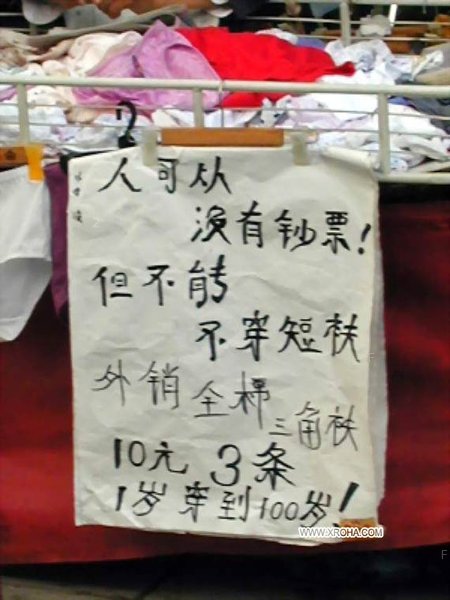 人可从
没有钞票!
但不能
不穿短衭
外销全棉
三角衭
10元 3条
1岁穿到100岁!
WWW.XROHA.COM
F